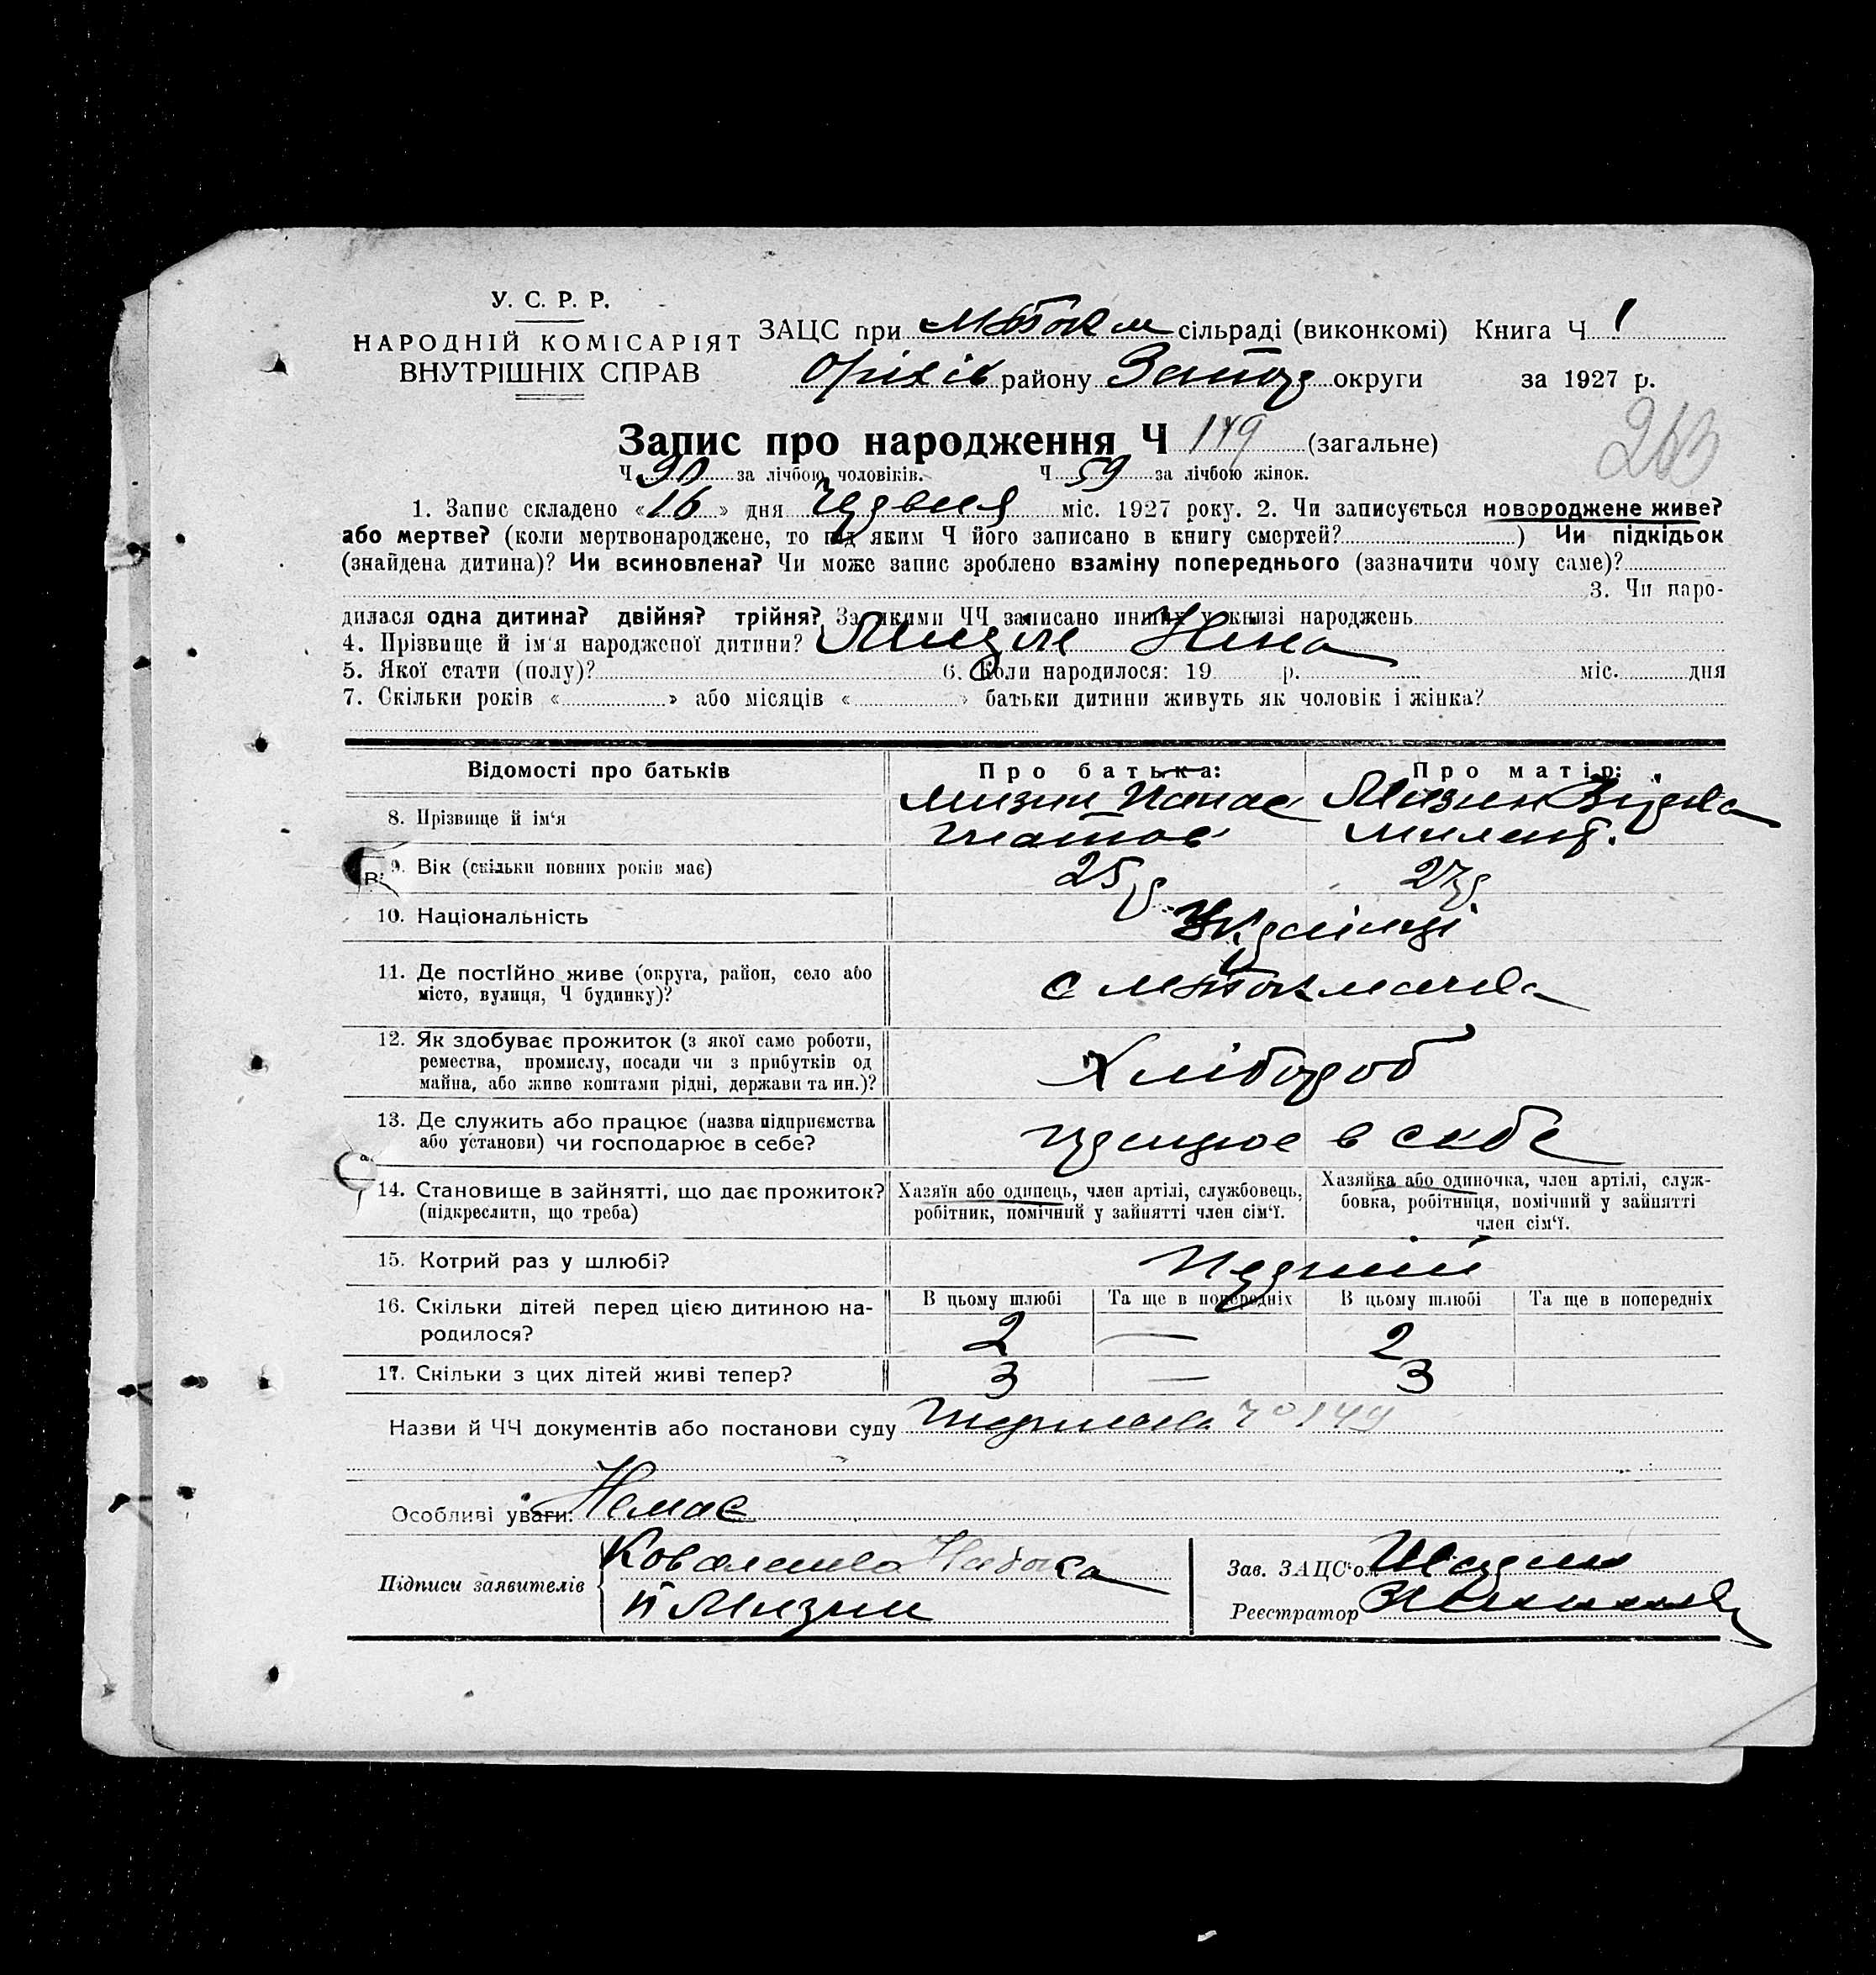 У. С. Р. Р.
НАРОДНІЙ КОМІСАРІЯТ
ВНУТРІШНІХ СПРАВ
ЗАЦС при М Ток м сільраді (виконкомі) Книга Ч 1
Оріхів району Запор округи за 1927 р.
263
Запис про народження Ч 149 (загальне)
Ч 90 за лічбою чоловіків. Ч 59 за лічбою жінок.
1. Запис складено «16» дня Червня міс. 1927 року. 2. Чи записується новороджене живе?
або мертве? (коли мертвонароджене, то під яким Ч його записано в книгу смертей? ) Чи підкідьок
(знайдена дитина)? Чи всиновлена? Чи може запис зроблено взаміну попереднього (зазначити чому саме)?
3. Чи наро-
дилася одна дитина? двійня? трійня? За якими ЧЧ записано инших у книзі народжень
4. Прізвище й ім'я народженої дитини? Мизин Нина
5. Якої стати (полу)? 6. Коли народилося: 19 р. міс. дня
7. Скільки років « » або місяців « » батьки дитини живуть як чоловік і жінка?
Відомості про батьків
Про батька:
Про матір:
8. Прізвище й ім'я
Мизин Панас
Мизин
9. Вік (скільки повних років має)
25 р
27 р
10. Національність
Українці
11. Де постійно живе (округа, район, село або
місто, вулиця, Ч будинку)?
с М Токмачка
12. Як здобуває прожиток (з якої саме роботи,
ремества, промислу, посади чи з прибутків од
майна, або живе коштами рідні, держави та ин.)?
Хлібороб
13. Де служить або працює (назва підприємства
або установи) чи господарює в себе?
працює в себе
14. Становище в зайнятті, що дає прожиток?
(підкреслити, що треба)
Хазяїн або одинець, член артілі, службовець,
робітник, помічний у зайнятті член сім'ї.
Хазяйка або одиночка, член артілі, служ-
бовка, робітниця, помічний у зайнятті
член сім'ї.
15. Котрий раз у шлюбі?
Перший
16. Скільки дітей перед цією дитиною на-
родилося?
В цьому шлюбі
Та ще в попередніх
В цьому шлюбі
Та ще в попередніх
2 — 2
17. Скільки з цих дітей живі тепер?
3 — 3
Назви й ЧЧ документів або постанови суду 149
Особливі уваги: Немає
Підписи заявителів
П Мизин
Зав. ЗАЦС'ом
Реєстратор